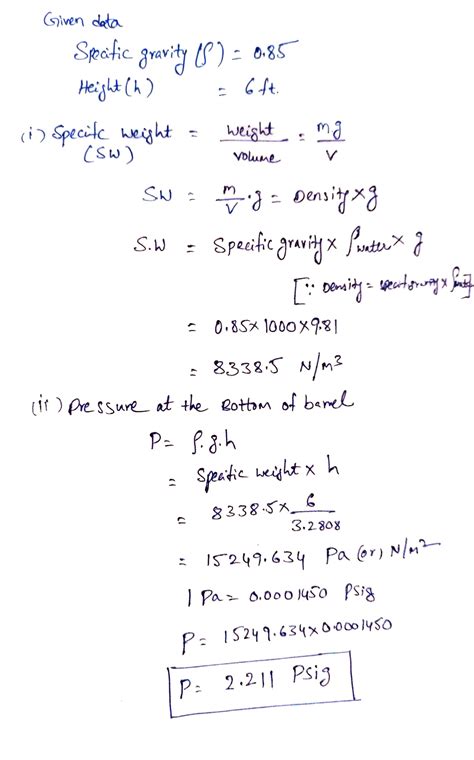 Given data
Specific gravity (ρ) = 0.85
Height (h) = 6 ft.
(i) Specifc weight = weight/volume = mg/V
(SW)
SW = m/V · g = Density × g
S.W = Specific gravity × ρwater × g
[∵ Density = × ρ
= 0.85 × 1000 × 9.81
= 8338.5 N/m³
(ii) Pressure at the Bottom of barrel
P = ρ.g.h
= Specific weight × h
= 8338.5 × 6/3.2808
= 15249.634 Pa (or) N/m²
1 Pa = 0.0001450 Psig
P = 15249.634 × 0.0001450
P = 2.211 Psig